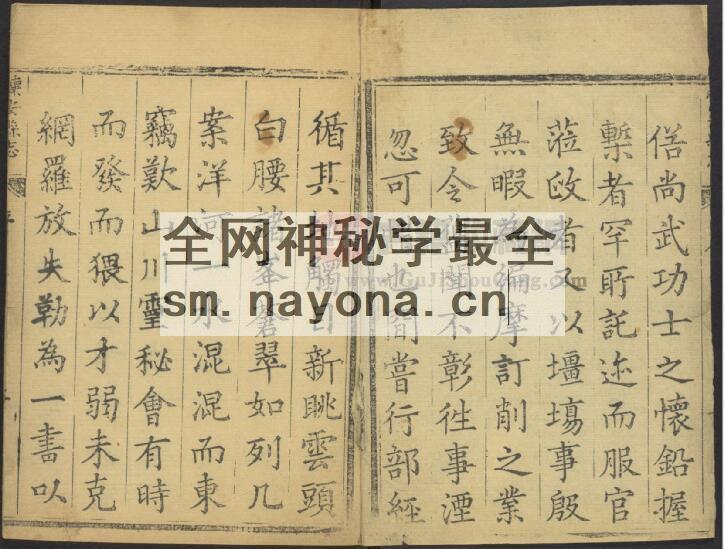 俗尚武功士之懷鉛握
槧者罕所託迹而服官
蒞政者又以壃塲事殷
無暇為編摩訂削之業
致令 聞不彰徃事湮
忽可 也間嘗行部經
循其 觸目新眺雲頭
白腰諸峯 翠如列几
案洋河一水混混而東
竊歎山川靈秘會有時
而發而猥以才弱未克
網羅放失勒為一書以
懷安縣志
全网神秘学最全
sm.nayona.cn